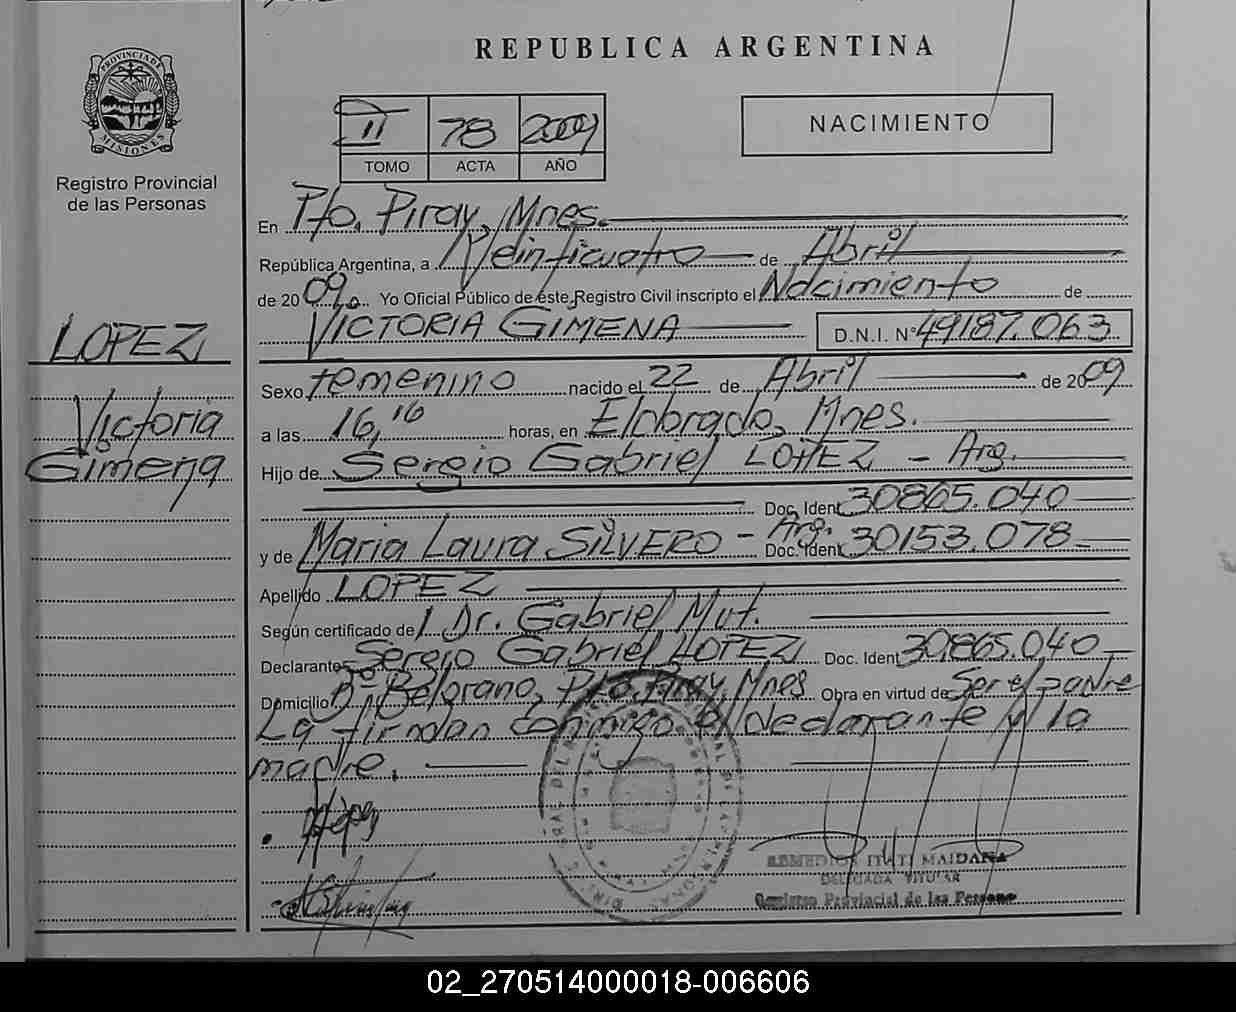 REPUBLICA ARGENTINA
PROVINCIA DE MISIONES
Registro Provincial
de las Personas
II 78 2009
TOMO ACTA AÑO
NACIMIENTO
LOPEZ
Victoria
Gimena
En Pto. Piray, Mnes.
República Argentina, a Veinticuatro de Abril
de 2009. Yo Oficial Público de éste Registro Civil inscripto el Nacimiento de
VICTORIA GIMENA D.N.I. N° 49187.063
Sexo femenino nacido el 22 de Abril de 2009
a las 16,10 horas, en Eldorado, Mnes.
Hijo de Sergio Gabriel LOPEZ - Arg.
Doc. Ident 30865.040
y de Maria Laura SILVERO - Arg. Doc. Ident 30153.078
Apellido LOPEZ
Según certificado de Dr. Gabriel Mut.
Declarante Sergio Gabriel LOPEZ Doc. Ident 30865.040
Domicilio B° Belgrano, Pto. Piray, Mnes Obra en virtud de Ser el padre
La firman conmigo el declarante y la
madre.
REMEDIOS ITATI MAIDANA
DELEGADA TITULAR
Registro Provincial de las Personas
02_270514000018-006606